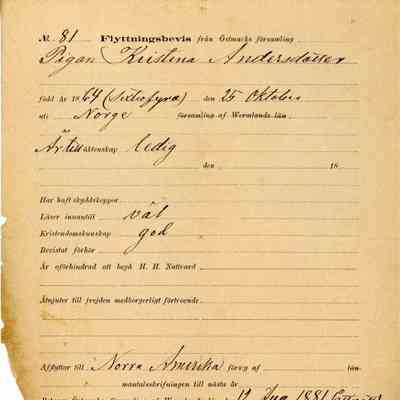 № 81 Flyttningsbevis från Östmarks församling
Pigan Kristina Andersdotter
född år 1864 (Sextiofyra) den 25 Oktober
uti Norge församling af Wermlands län
Är till äktenskap ledig
den 18
Har haft skyddskoppor
Läser innantill väl
Kristendomskunskap god
Bevistat förhör
Är oförhindrad att begå H. H. Nattvard
Åtnjuter till frejden medborgerligt förtroende
Afflyttar till Norra Amerika församl. af län
mantalsskrifningen till nästa år
12 Aug 1881